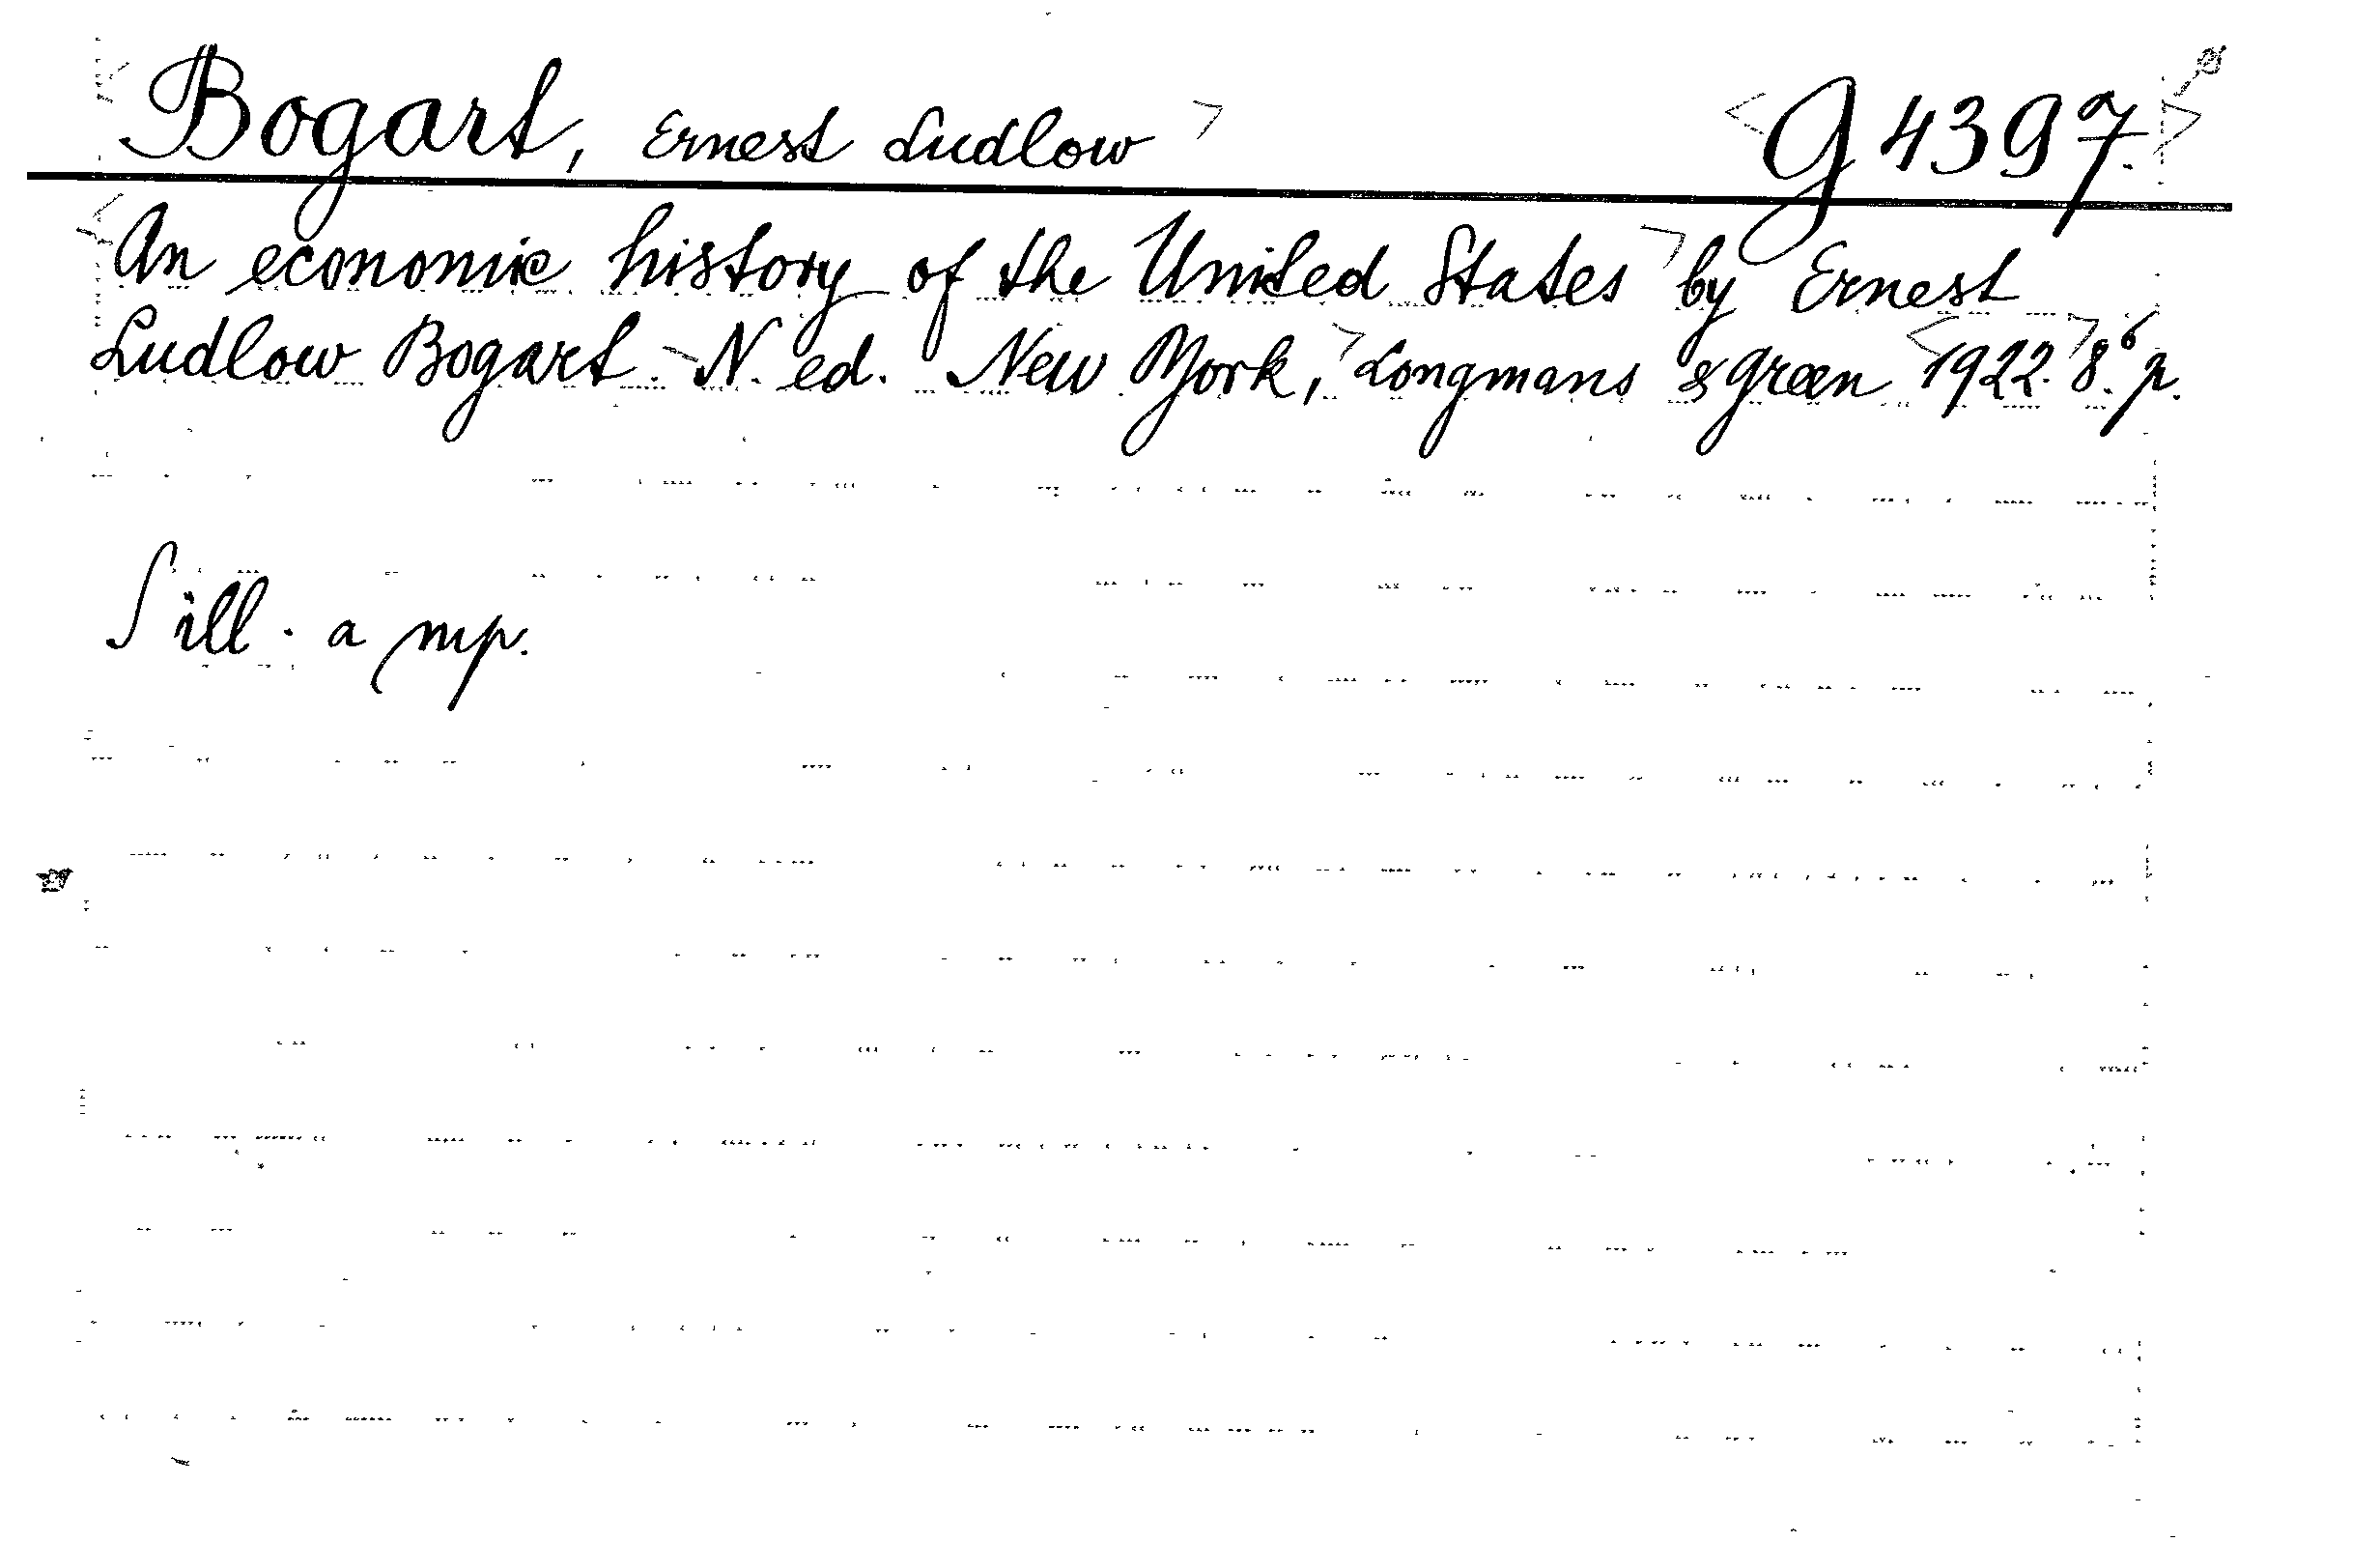 Bogart, Ernest Ludlow G 4397.
An economic history of the United States by Ernest
Ludlow Bogart. N. ed. New York, Longmans & Green 1922. 8.° p.
S ill. a mp.